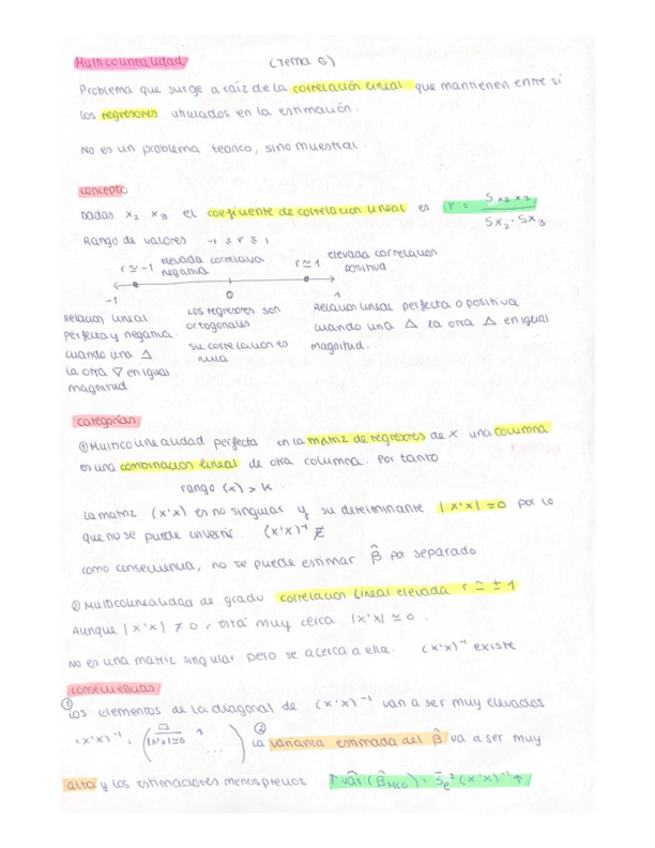 Multicolinealidad (Tema 6)
Problema que surge a raíz de la correlación lineal que mantienen entre sí
los regresores utilizados en la estimación.
No es un problema teorico, sino muestral.
concepto
Dadas x₂ x₃ el coeficiente de correlacion lineal es r = S x₂ x₃ / Sx₂ · Sx₃
Rango de valores -1 ≤ r ≤ 1
r ≃ -1 elevada correlación negativa r ≃ 1 elevada correlacion positiva
-1 0 1
Relación lineal perfecta y negativa. cuando una △ la otra ▽ en igual magnitud
Los regresores son ortogonales su correlacion es nula
Relación lineal perfecta o positiva cuando una △ la otra △ en igual magnitud.
categorías
① Multicolinealidad perfecta en la matriz de regresores de X una columna
es una combinacion lineal de otra columna. Por tanto
rango (x) > K.
La matriz (x'x) es no singular y su determinante |x'x| = 0 por lo
que no se puede invertir. (x'x)⁻¹ ∄
como consecuencia, no se puede estimar β̂ por separado
② Multicolinealidad de grado correlacion lineal elevada r ≃ ± 1
Aunque |x'x| ≠ 0, está muy cerca |x'x| ≃ 0.
No es una matriz singular pero se acerca a ella. (x'x)⁻¹ existe
consecuencias
① Los elementos de la diagonal de (x'x)⁻¹ van a ser muy elevados
(x'x)⁻¹ = ( □ / |x'x|≃0 ... ) ② La varianza estimada del β̂ va a ser muy
alta y los estimadores menos precisos ↑ vâr (β̂ MCO) = S̄e² (x'x)⁻¹ ↑